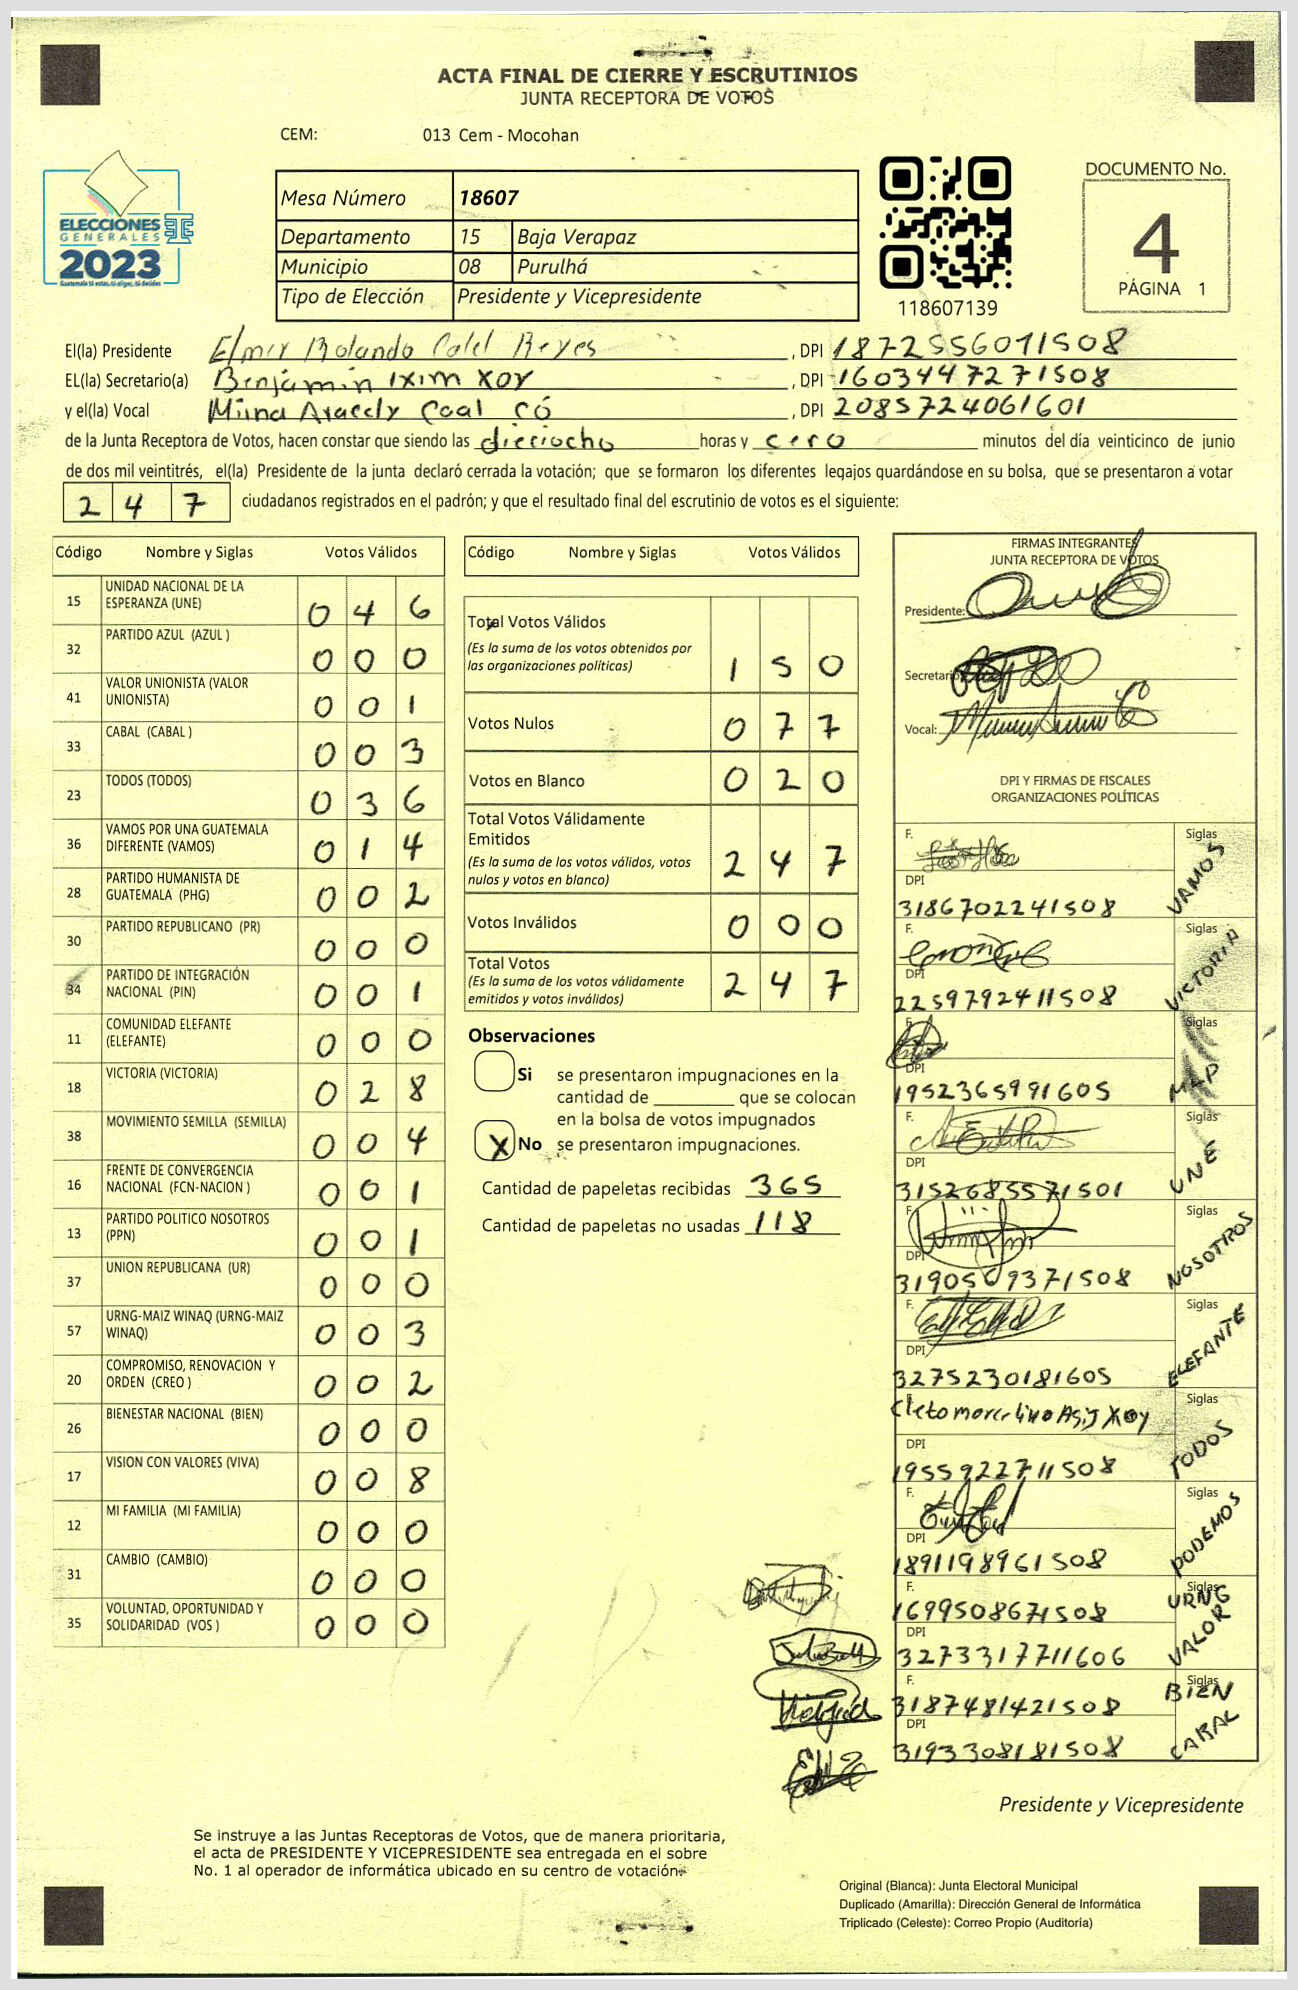 ACTA FINAL DE CIERRE Y ESCRUTINIOS
JUNTA RECEPTORA DE VOTOS
CEM: 013 Cem - Mocohan
ELECCIONES
GENERALES
2023
Guatemala tú votas, tú eliges, tú decides
Mesa Número 18607
Departamento 15 Baja Verapaz
Municipio 08 Purulhá
Tipo de Elección Presidente y Vicepresidente
118607139
DOCUMENTO No.
4
PÁGINA 1
El(la) Presidente Elmir Rolando Calel Reyes , DPI 1872556071508
EL(la) Secretario(a) Benjamin Ixim Xoy , DPI 1603447271508
y el(la) Vocal Mirna Aracely Caal Có , DPI 2085724061601
de la Junta Receptora de Votos, hacen constar que siendo las dieciocho horas y cero minutos del día veinticinco de junio
de dos mil veintitrés, el(la) Presidente de la junta declaró cerrada la votación; que se formaron los diferentes legajos quardándose en su bolsa, que se presentaron a votar
2 4 7 ciudadanos registrados en el padrón; y que el resultado final del escrutinio de votos es el siguiente:
Código Nombre y Siglas Votos Válidos
15 UNIDAD NACIONAL DE LA ESPERANZA (UNE) 0 4 6
32 PARTIDO AZUL (AZUL ) 0 0 0
41 VALOR UNIONISTA (VALOR UNIONISTA) 0 0 1
33 CABAL (CABAL ) 0 0 3
23 TODOS (TODOS) 0 3 6
36 VAMOS POR UNA GUATEMALA DIFERENTE (VAMOS) 0 1 4
28 PARTIDO HUMANISTA DE GUATEMALA (PHG) 0 0 2
30 PARTIDO REPUBLICANO (PR) 0 0 0
34 PARTIDO DE INTEGRACIÓN NACIONAL (PIN) 0 0 1
11 COMUNIDAD ELEFANTE (ELEFANTE) 0 0 0
18 VICTORIA (VICTORIA) 0 2 8
38 MOVIMIENTO SEMILLA (SEMILLA) 0 0 4
16 FRENTE DE CONVERGENCIA NACIONAL (FCN-NACION ) 0 0 1
13 PARTIDO POLITICO NOSOTROS (PPN) 0 0 1
37 UNION REPUBLICANA (UR) 0 0 0
57 URNG-MAIZ WINAQ (URNG-MAIZ WINAQ) 0 0 3
20 COMPROMISO, RENOVACION Y ORDEN (CREO ) 0 0 2
26 BIENESTAR NACIONAL (BIEN) 0 0 0
17 VISION CON VALORES (VIVA) 0 0 8
12 MI FAMILIA (MI FAMILIA) 0 0 0
31 CAMBIO (CAMBIO) 0 0 0
35 VOLUNTAD, OPORTUNIDAD Y SOLIDARIDAD (VOS ) 0 0 0
Código Nombre y Siglas Votos Válidos
Total Votos Válidos
(Es la suma de los votos obtenidos por las organizaciones políticas) 1 5 0
Votos Nulos 0 7 7
Votos en Blanco 0 2 0
Total Votos Válidamente Emitidos
(Es la suma de los votos válidos, votos nulos y votos en blanco) 2 4 7
Votos Inválidos 0 0 0
Total Votos
(Es la suma de los votos válidamente emitidos y votos inválidos) 2 4 7
Observaciones
Si se presentaron impugnaciones en la
cantidad de ________ que se colocan
en la bolsa de votos impugnados
X No se presentaron impugnaciones.
Cantidad de papeletas recibidas 365
Cantidad de papeletas no usadas 118
FIRMAS INTEGRANTES
JUNTA RECEPTORA DE VOTOS
Presidente:
Secretario:
Vocal:
DPI Y FIRMAS DE FISCALES
ORGANIZACIONES POLÍTICAS
F. Siglas VAMOS
DPI
3186702241508
F. Siglas VICTORIA
DPI
2259792411508
F. Siglas MLP
DPI
1952365991605
F. Siglas UNE
DPI
3152685571501
F. Siglas NOSOTROS
DPI
3190569371508
F. Siglas ELEFANTE
DPI
3275230181605
Cleto Marcelino Asij Xoy Siglas TODOS
DPI
1955922711508
F. Siglas PODEMOS
DPI
1891198961508
F. Siglas URNG
1699508671508
DPI VALOR
3273317711606
F. Siglas BIEN
3187481421508
DPI CABAL
3193308181508
Presidente y Vicepresidente
Se instruye a las Juntas Receptoras de Votos, que de manera prioritaria,
el acta de PRESIDENTE Y VICEPRESIDENTE sea entregada en el sobre
No. 1 al operador de informática ubicado en su centro de votación.
Original (Blanca): Junta Electoral Municipal
Duplicado (Amarilla): Dirección General de Informática
Triplicado (Celeste): Correo Propio (Auditoría)